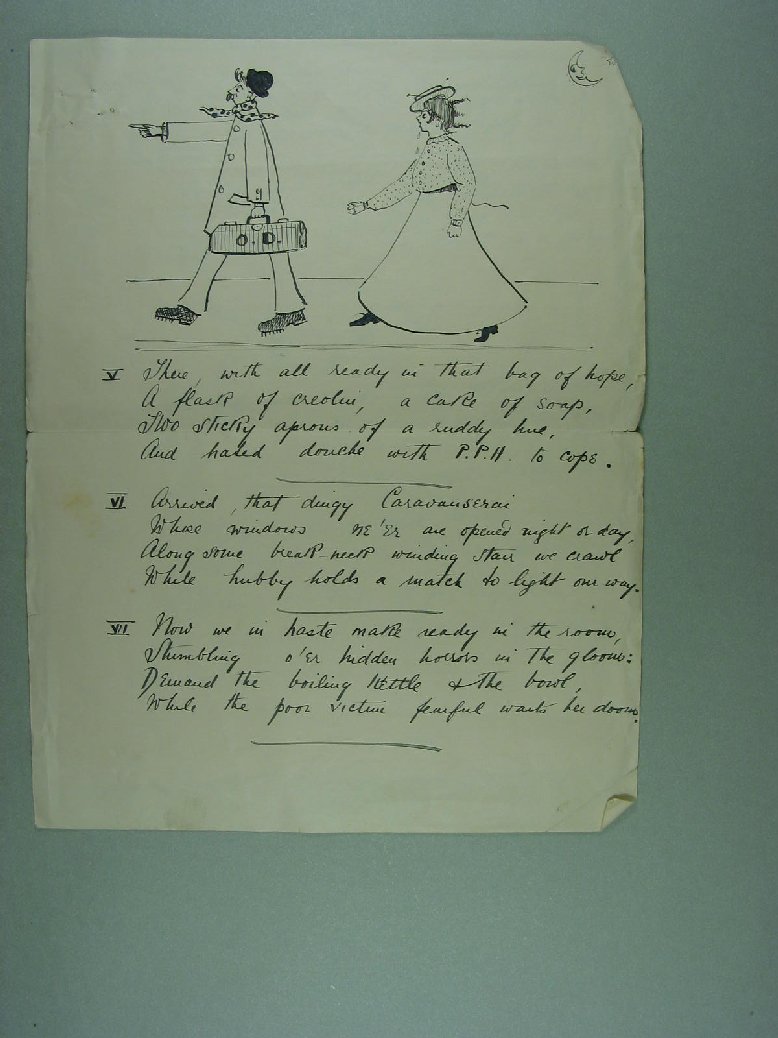 V There, with all ready in that bag of hope,
A flask of creolin, a cake of soap,
Two sticky aprons of a ruddy hue,
And hated douche with P.P.H. to cope.
VI Arrived, that dingy Caravanserai
Whose windows ne'er are opened night or day,
Along some break-neck winding stair we crawl
While hubby holds a match to light our way.
VII Now we in haste make ready in the room,
Stumbling o'er hidden horrors in the gloom:
Demand the boiling kettle & the bowl,
While the poor victim fearful waits her doom.